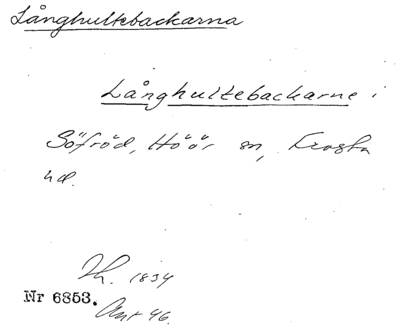 Långhultebackarna
Långhultebackarne i
Söfröd, Höör sn, Frosta
hd.
Th. 1834
Nr 6853.
Ant 46.